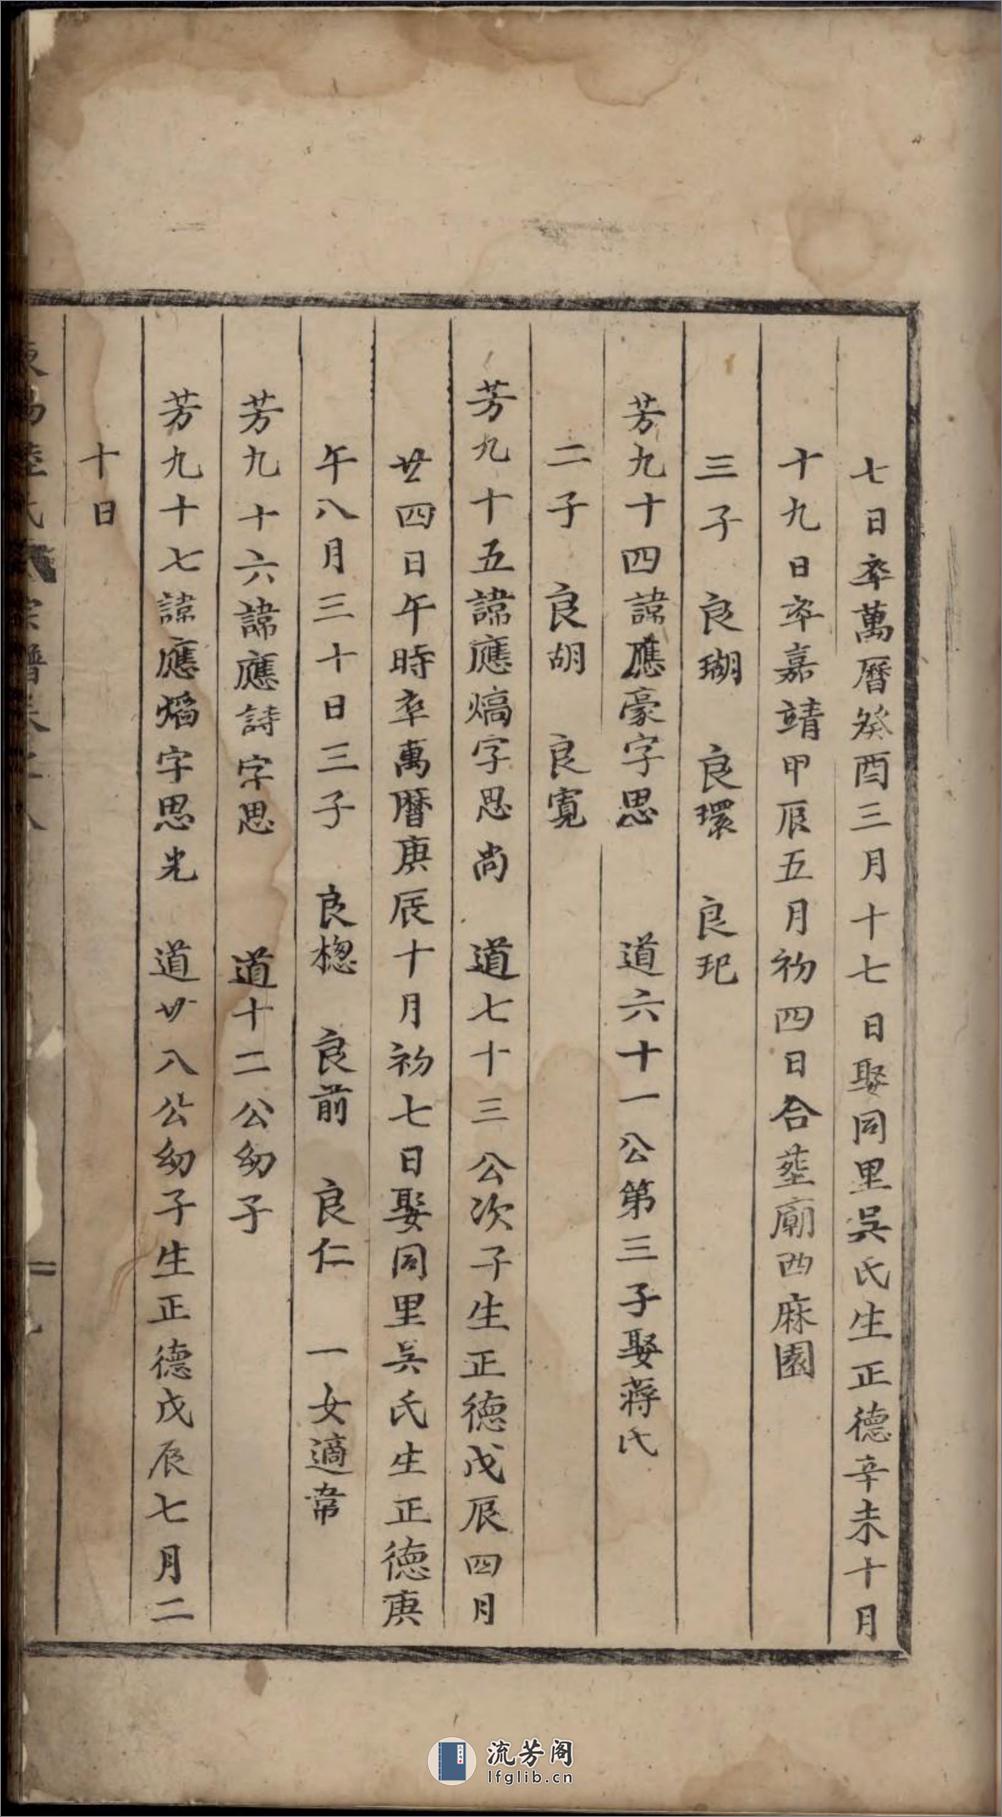 七日卒萬曆癸酉三月十七日娶同里吳氏生正德辛未十月
十九日卒嘉靖甲辰五月初四日合塟廟西麻園
三子　良瑚　良環　良玘
芳九十四諱應豪字思　道六十一公第三子娶蔣氏
二子　良胡　良寬
芳九十五諱應熇字思尚　道七十三公次子生正德戊辰四月
廿四日午時卒萬曆庚辰十月初七日娶同里吳氏生正德庚
午八月三十日三子　良楤　良前　良仁　一女適常
芳九十六諱應詩字思　道十二公幼子
芳九十七諱應熖字思光　道廿八公幼子生正德戊辰七月二
十日
氏宗譜卷之八
流芳阁
lfglib.cn